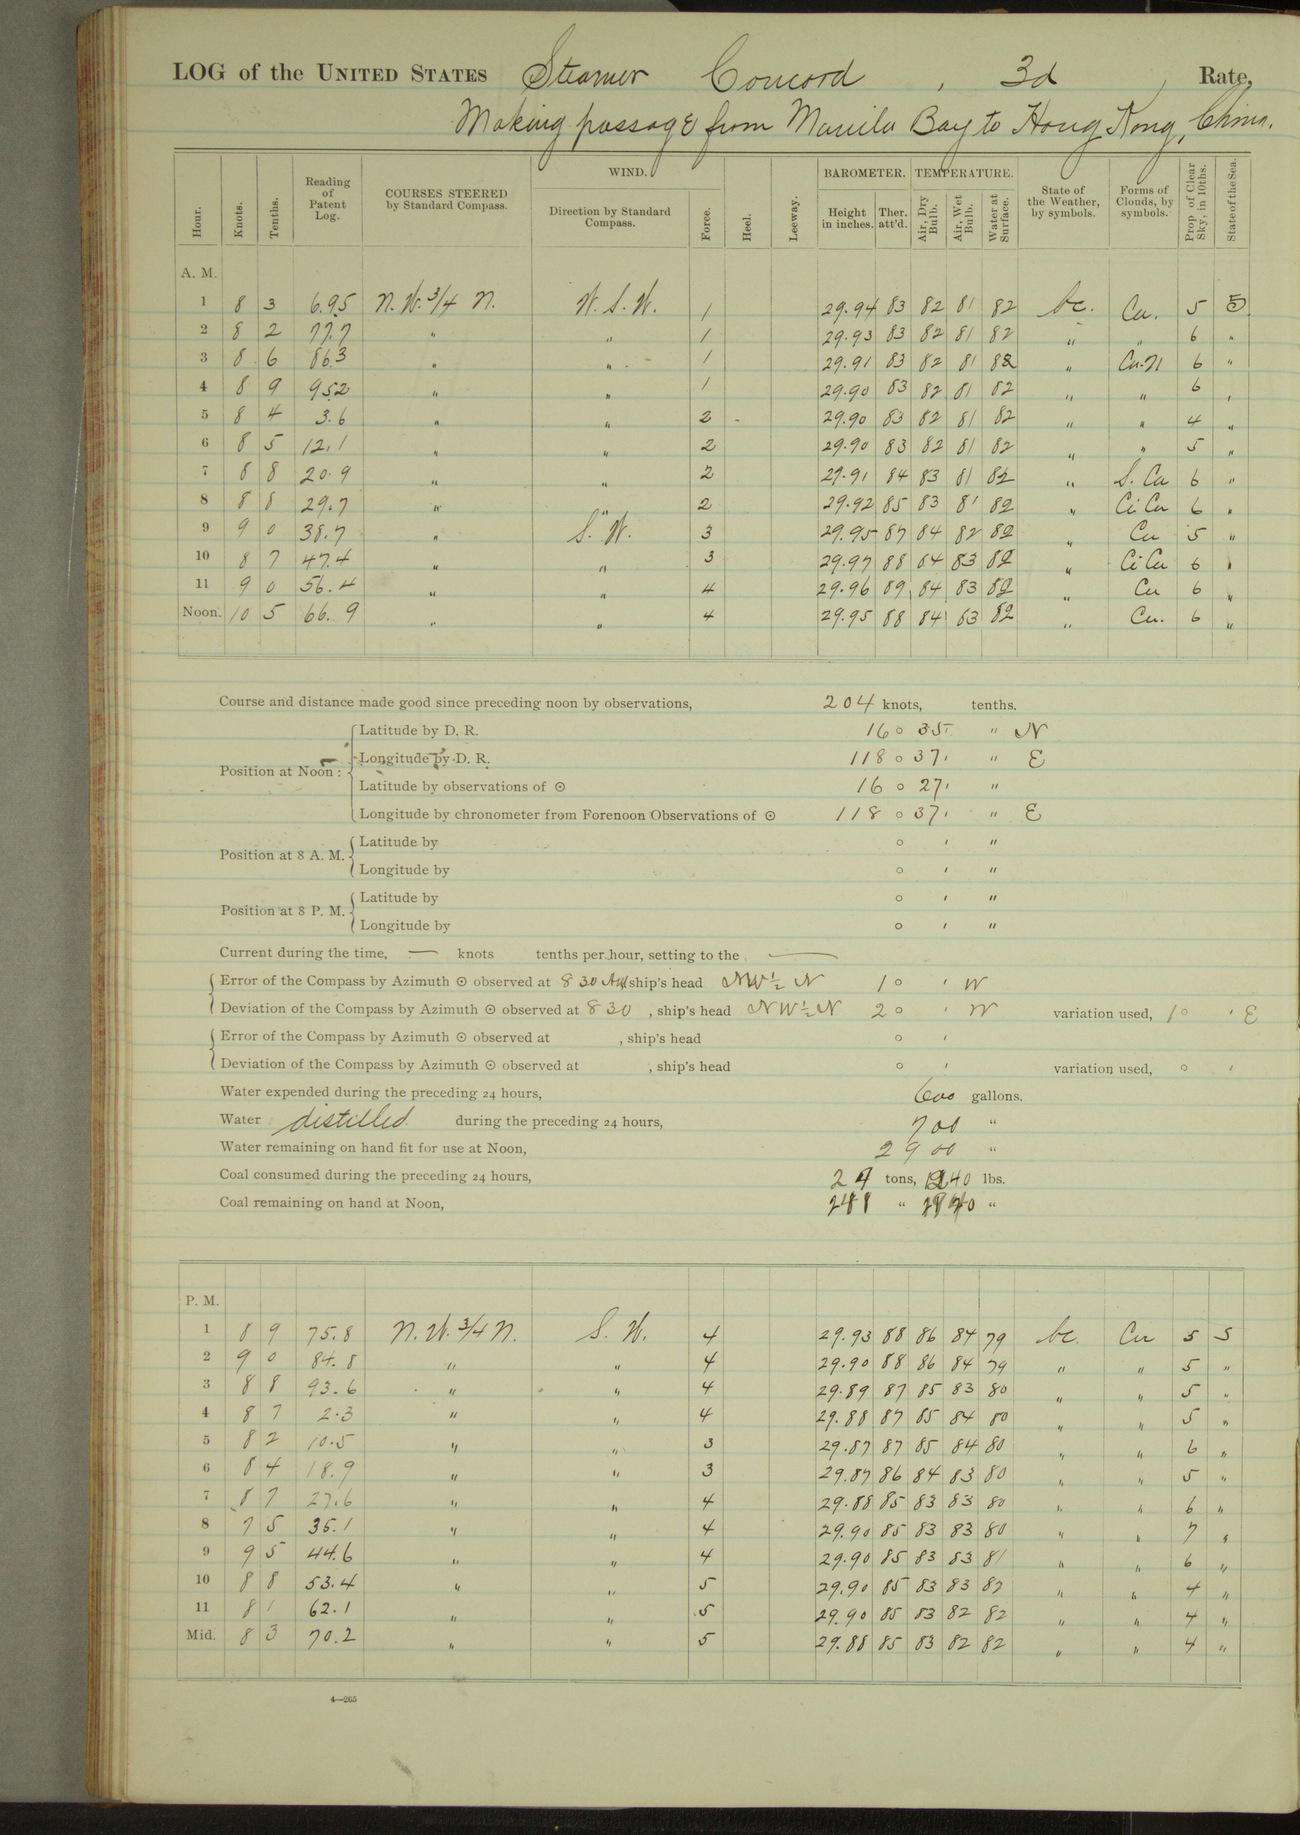 LOG of the UNITED STATES Steamer Concord , 3d , Rate,
Making passage from Manila Bay to Hong Kong, China.
Hour. Knots. Tenths. Reading of Patent Log. COURSES STEERED by Standard Compass. WIND. Direction by Standard Compass. Force. Heel. Leeway. BAROMETER. Height in inches. Ther. att'd. TEMPERATURE. Air, Dry Bulb. Air, Wet Bulb. Water at Surface. State of the Weather, by symbols. Forms of Clouds, by symbols. Prop. of Clear Sky, in 10ths. State of the Sea.
A. M.
1 8 3 69.5 N. W. 3/4 N. W. S. W. 1 29.94 83 82 81 82 bc. Cu. 5 5
2 8 2 77.7 " " 1 29.93 83 82 81 82 " " 6 "
3 8 6 86.3 " " 1 29.91 83 82 81 82 " Cu-N 6 "
4 8 9 95.2 " " 1 29.90 83 82 81 82 " " 6 "
5 8 4 3.6 " " 2 29.90 83 82 81 82 " " 4 "
6 8 5 12.1 " " 2 29.90 83 82 81 82 " " 5 "
7 8 8 20.9 " " 2 29.91 84 83 81 82 " S. Cu 6 "
8 8 8 29.7 " " 2 29.92 85 83 81 82 " Ci Cu 6 "
9 9 0 38.7 " S. W. 3 29.95 87 84 82 82 " Cu 5 "
10 8 7 47.4 " " 3 29.97 88 84 83 82 " Ci Cu 6 "
11 9 0 56.4 " " 4 29.96 89 84 83 82 " Cu 6 "
Noon. 10 5 66.9 " " 4 29.95 88 84 83 82 " Cu. 6 "
Course and distance made good since preceding noon by observations, 204 knots, tenths.
Position at Noon:
Latitude by D. R. 16 ° 35 ' " N
Longitude by D. R. 118 ° 37 ' " E
Latitude by observations of ☉ 16 ° 27 ' "
Longitude by chronometer from Forenoon Observations of ☉ 118 ° 37 ' " E
Position at 8 A. M.
Latitude by ° ' "
Longitude by ° ' "
Position at 8 P. M.
Latitude by ° ' "
Longitude by ° ' "
Current during the time, — knots tenths per hour, setting to the —
Error of the Compass by Azimuth ☉ observed at 8 30 AM ship's head NW ½ N 1 ° ' W
Deviation of the Compass by Azimuth ☉ observed at 8 30 , ship's head NW ½ N 2 ° ' W variation used, 1 ° ' E
Error of the Compass by Azimuth ☉ observed at , ship's head ° '
Deviation of the Compass by Azimuth ☉ observed at , ship's head ° ' variation used, ° '
Water expended during the preceding 24 hours, 600 gallons.
Water distilled during the preceding 24 hours, 700 "
Water remaining on hand fit for use at Noon, 2900 "
Coal consumed during the preceding 24 hours, tons, lbs.
Coal remaining on hand at Noon, " "
P. M.
1 8 9 75.8 N. W. 3/4 N. S. W. 4 29.93 88 86 84 79 bc. Cu 5 5
2 9 0 84.8 " " 4 29.90 88 86 84 79 " " 5 "
3 8 8 93.6 " " 4 29.89 87 85 83 80 " " 5 "
4 8 7 2.3 " " 4 29.88 87 85 84 80 " " 5 "
5 8 2 10.5 " " 3 29.87 87 85 84 80 " " 6 "
6 8 4 18.9 " " 3 29.87 86 84 83 80 " " 5 "
7 8 7 27.6 " " 4 29.88 85 83 83 80 " " 6 "
8 7 5 35.1 " " 4 29.90 85 83 83 80 " " 7 "
9 9 5 44.6 " " 4 29.90 85 83 83 81 " " 6 "
10 8 8 53.4 " " 5 29.90 85 83 83 82 " " 4 "
11 8 1 62.1 " " 5 29.90 85 83 82 82 " " 4 "
Mid. 8 3 70.2 " " 5 29.88 85 83 82 82 " " 4 "
4—265